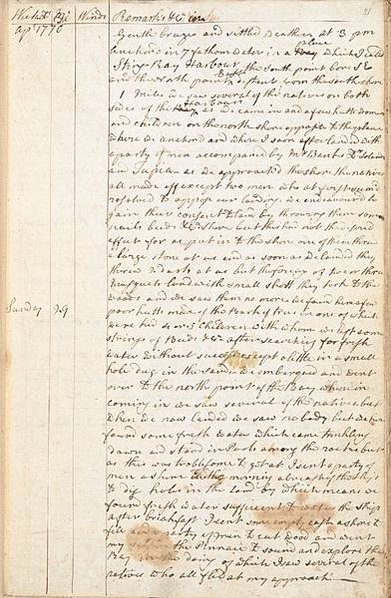 21
Week Days Winds Remarks &c
Apl 1770
Gentle breeze and settled weather at 3 pm
Anchord in 7 fathom water in a place which I call'd
Sting-Ray Harbour the south point bore SE
and the North point East distant from the south shore
1 Mile we saw several of the natives on both
sides of the Harbour as we came in and a few hutts Women
and children on the north shore opposite to the place
where we anchord and where I soon after landed with
a party of men accompaned by Mr Banks Dr Solander
and Tupia as we approached the shore the natives
all made off except two men who at first seemd
resolved to oppose our landing we endeavourd to
gain their consent to land by throwing them some
nails beeds &c a shore but this had not the desired
effect for as we put in to the shore one of them threw
a large stone at us and as soon as we landed they
threw 2 darts at us but the fireing of two or three
Musquets load with small shott they took to the
woods and we saw them no more we found here a few
poor hutts made of the bark of trees in one of which
Sunday 29
were hid 4 or 5 children with whom we left some
strings of Beeds &c after searching for fresh
water without success except a little in a small
hole dug in the sand we embarqued and went
over to the north point of the Bay where in
coming in we saw several of the natives but
when we now landed we saw no body but we here
found some fresh water which came trinkleing
down and stood in Pools among the rocks but
as this was troblesome to get at I sent a party of
men a shore in the morning abreast of the ship
to dig holes in the sand by which means we
found fresh water sufficient to water the ship
after breakfast I sent some empty casks a shore to
fill and a party of men to cut wood and went
my self in the Pinnace to sound and explore the
Bay in the doing of which I saw several of the
natives who all fled at my approach